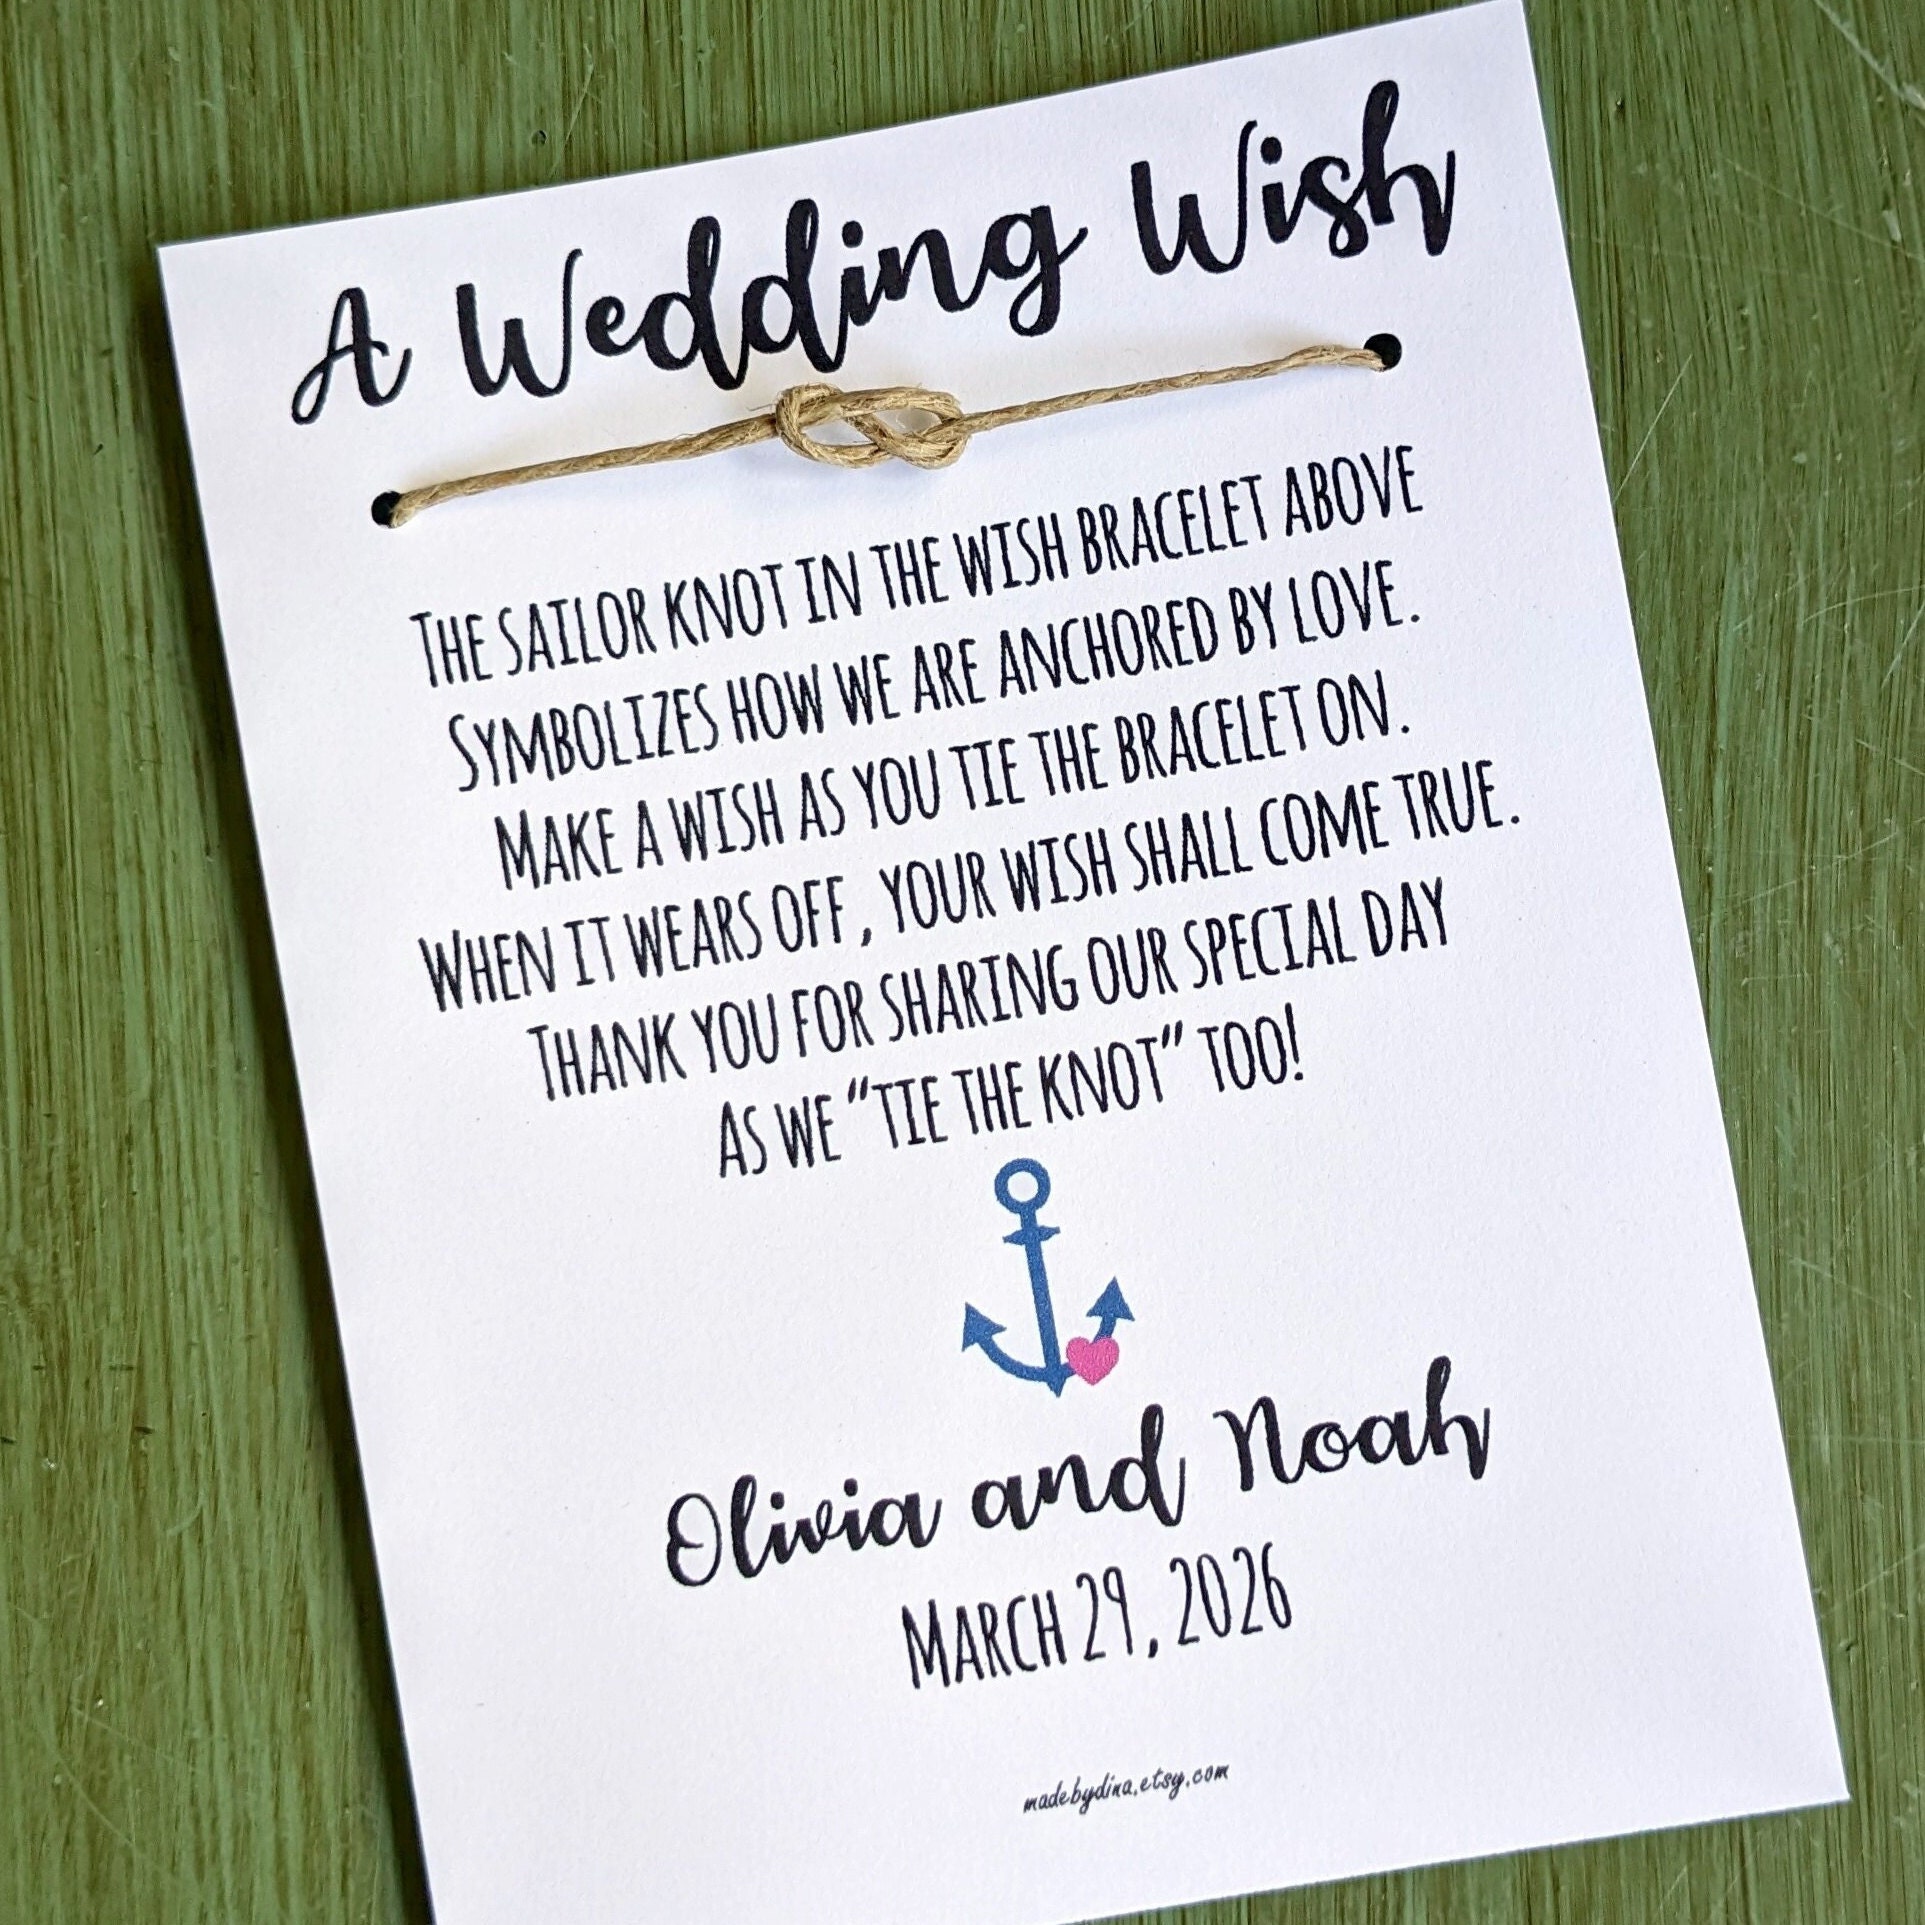 A Wedding Wish
THE SAILOR KNOT IN THE WISH BRACELET ABOVE
SYMBOLIZES HOW WE ARE ANCHORED BY LOVE.
MAKE A WISH AS YOU TIE THE BRACELET ON.
WHEN IT WEARS OFF, YOUR WISH SHALL COME TRUE.
THANK YOU FOR SHARING OUR SPECIAL DAY
AS WE "TIE THE KNOT" TOO!
Olivia and Noah
MARCH 29, 2026
madebydina.etsy.com